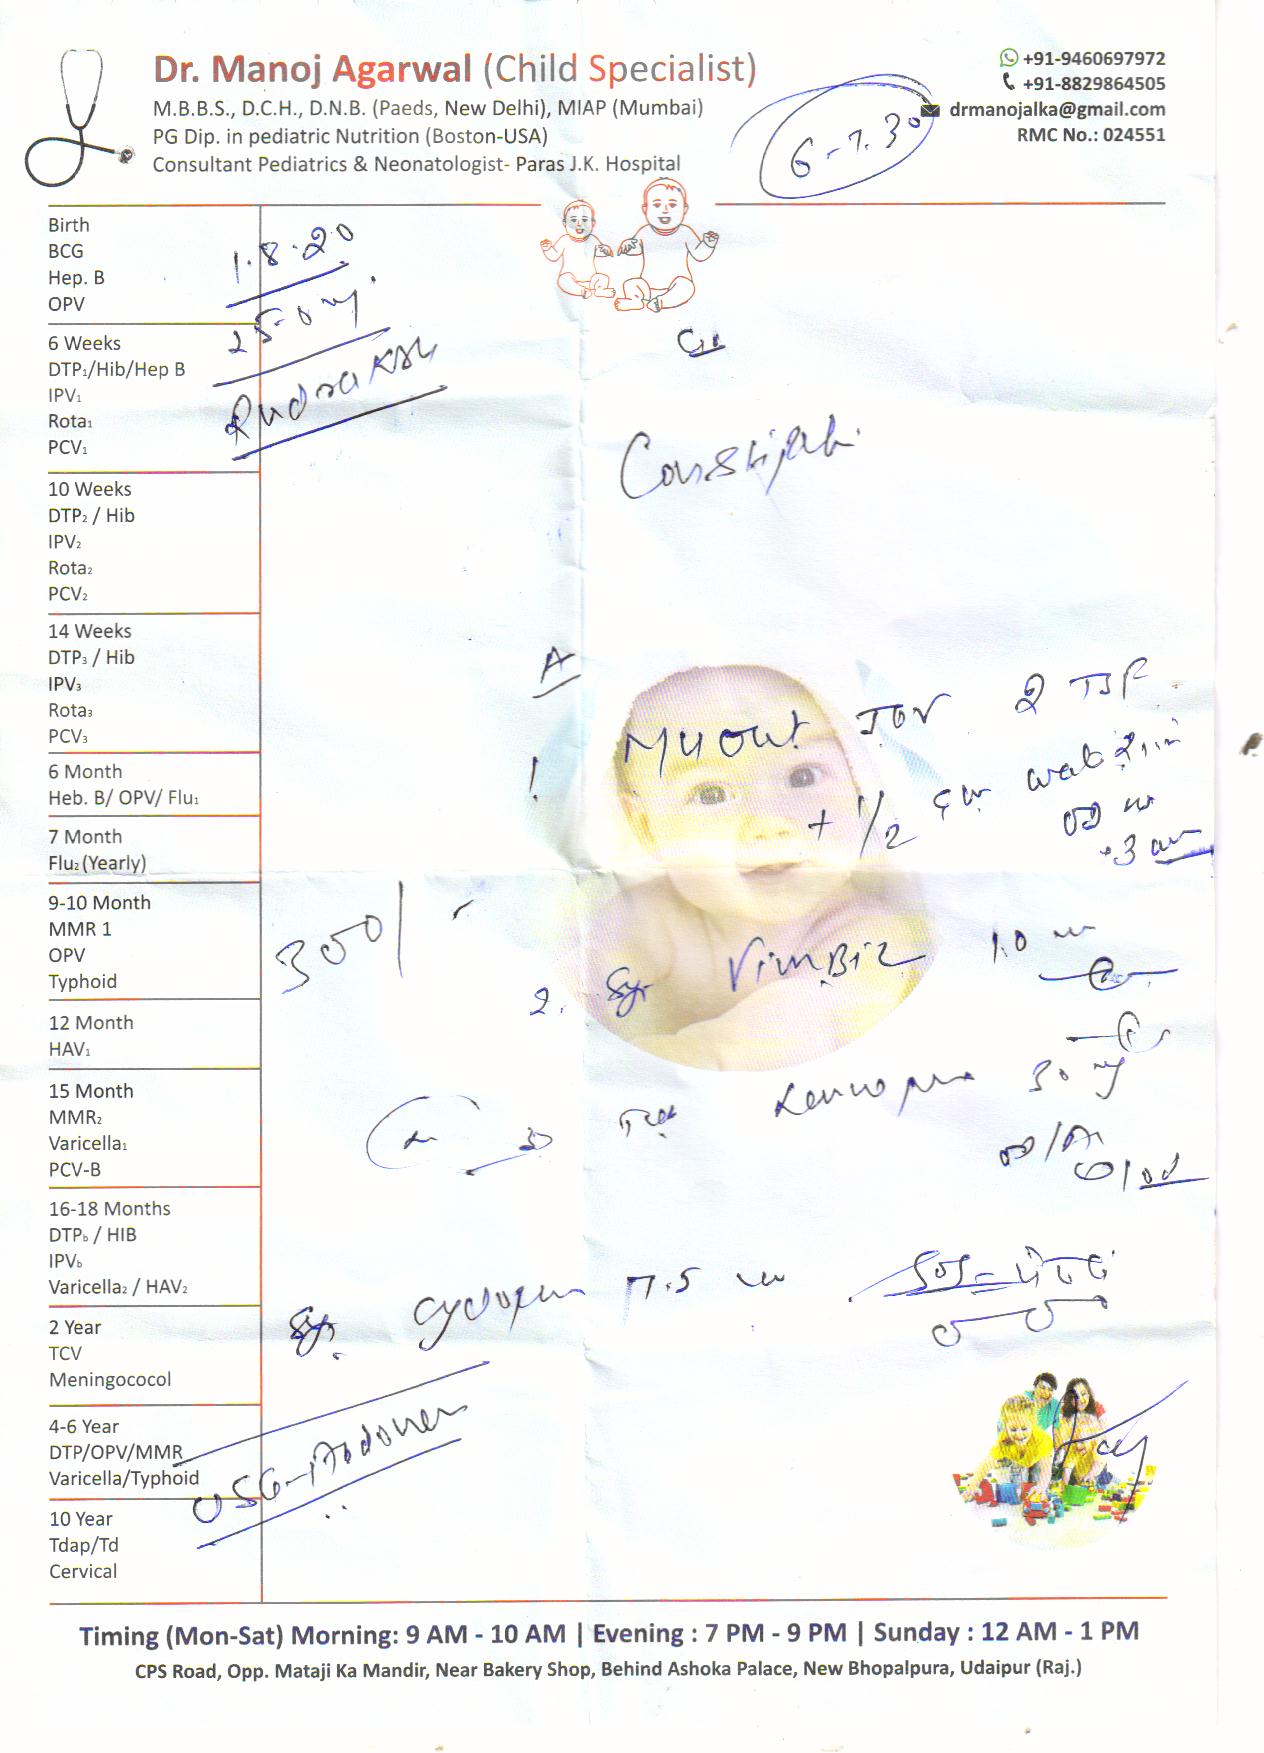 Dr. Manoj Agarwal (Child Specialist)
M.B.B.S., D.C.H., D.N.B. (Paeds, New Delhi), MIAP (Mumbai)
PG Dip. in pediatric Nutrition (Boston-USA)
Consultant Pediatrics & Neonatologist- Paras J.K. Hospital
+91-9460697972
+91-8829864505
drmanojalka@gmail.com
RMC No.: 024551
6-7.30
Birth
BCG
Hep. B
OPV
1.8.20
6 Weeks
DTP₁/Hib/Hep B
IPV₁
Rota₁
PCV₁
Rudraksh
10 Weeks
DTP₂ / Hib
IPV₂
Rota₂
PCV₂
14 Weeks
DTP₃ / Hib
IPV₃
Rota₃
PCV₃
6 Month
Heb. B/ OPV/ Flu₁
7 Month
Flu₂ (Yearly)
9-10 Month
MMR 1
OPV
Typhoid
12 Month
HAV₁
15 Month
MMR₂
Varicella₁
PCV-B
16-18 Months
DTPb / HIB
IPVb
Varicella₂ / HAV₂
2 Year
TCV
Meningococol
4-6 Year
DTP/OPV/MMR
Varicella/Typhoid
10 Year
Tdap/Td
Cervical
A
2 TSF
+ 1/2
300/-
2. Syr
30 mg
Syr. 7.5
SOS
USG-
Timing (Mon-Sat) Morning: 9 AM - 10 AM | Evening : 7 PM - 9 PM | Sunday : 12 AM - 1 PM
CPS Road, Opp. Mataji Ka Mandir, Near Bakery Shop, Behind Ashoka Palace, New Bhopalpura, Udaipur (Raj.)